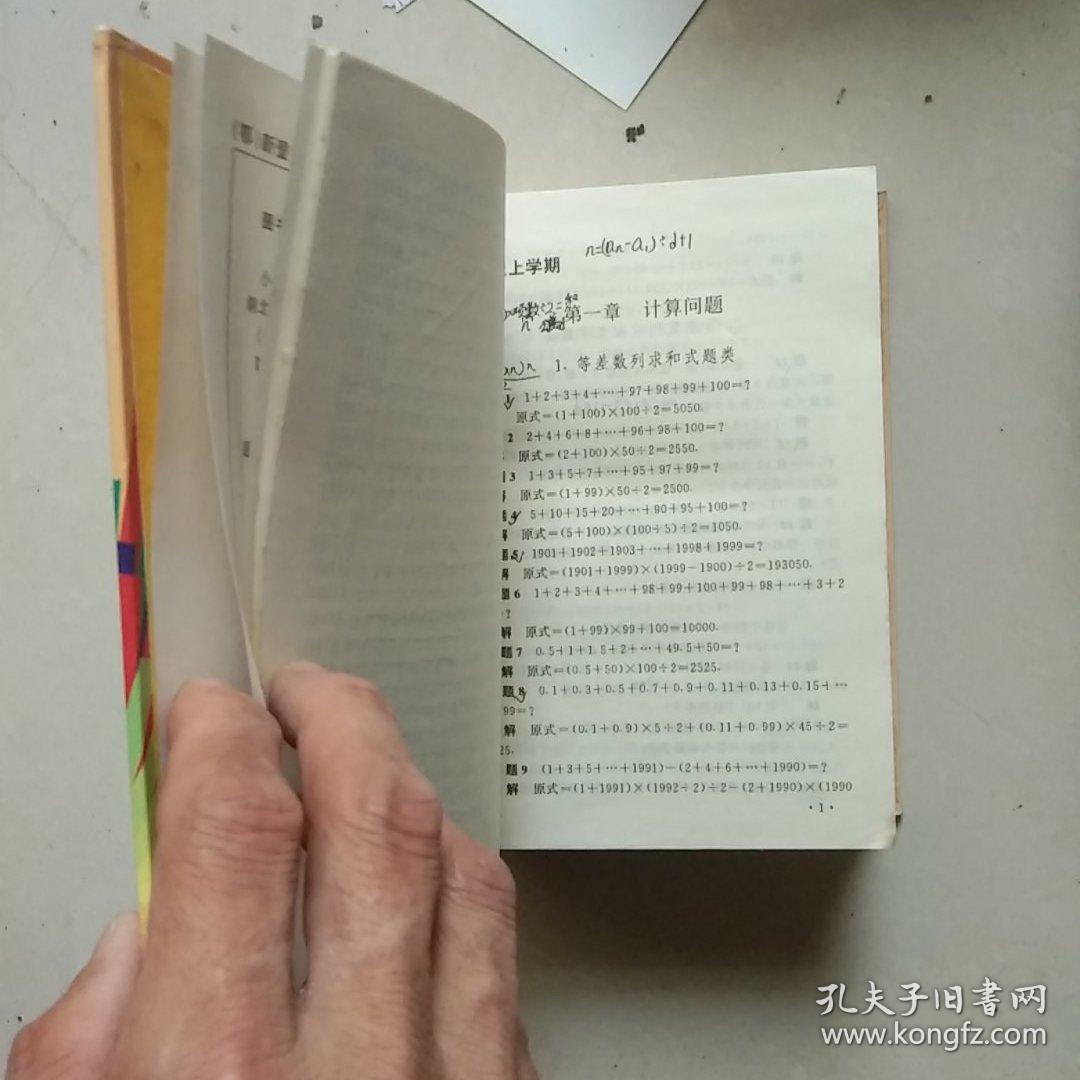 (鄂)新登
小
n=(an-a1)÷d+1
上学期
第一章 计算问题
1. 等差数列求和式题类
1+2+3+4+…+97+98+99+100=?
原式=(1+100)×100÷2=5050.
2 2+4+6+8+…+96+98+100=?
原式=(2+100)×50÷2=2550.
3 1+3+5+7+…+95+97+99=?
原式=(1+99)×50÷2=2500.
5+10+15+20+…+90+95+100=?
解 原式=(5+100)×(100÷5)÷2=1050.
题5 1901+1902+1903+…+1998+1999=?
解 原式=(1901+1999)×(1999-1900)÷2=193050.
题6 1+2+3+4+…+98+99+100+99+98+…+3+2
?
解 原式=(1+99)×99+100=10000.
题7 0.5+1+1.5+2+…+49.5+50=?
解 原式=(0.5+50)×100÷2=2525.
题8 0.1+0.3+0.5+0.7+0.9+0.11+0.13+0.15+…
99=?
解 原式=(0.1+0.9)×5÷2+(0.11+0.99)×45÷2=
25.
题9 (1+3+5+…+1991)-(2+4+6+…+1990)=?
解 原式=(1+1991)×(1992÷2)÷2-(2+1990)×(1990
·1·
孔夫子旧書网
www.kongfz.com